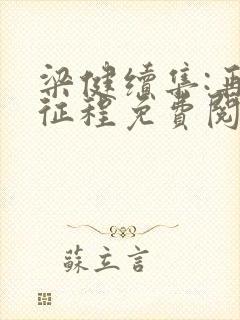 梁健續集:再
征程免費閱
蘇立言